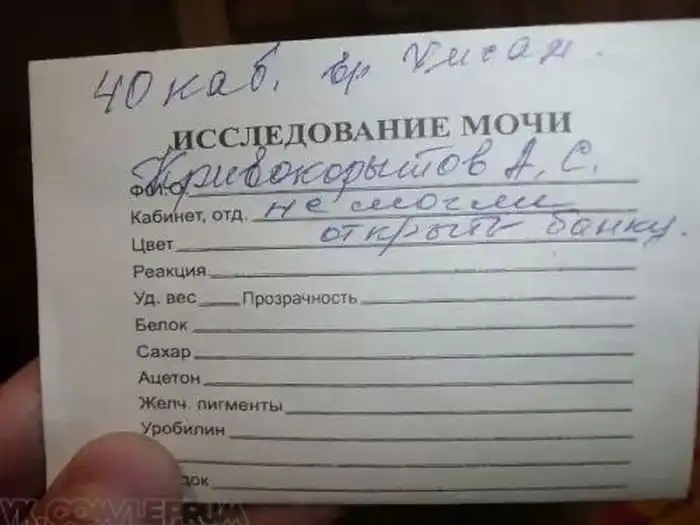 40 каб. вр
ИССЛЕДОВАНИЕ МОЧИ
Кривокорытов А. С.
Кабинет, отд. не могли
Цвет открыть банку.
Реакция
Уд. вес Прозрачность
Белок
Сахар
Ацетон
Желч. пигменты
Уробилин
VK.COM/LEPRUM